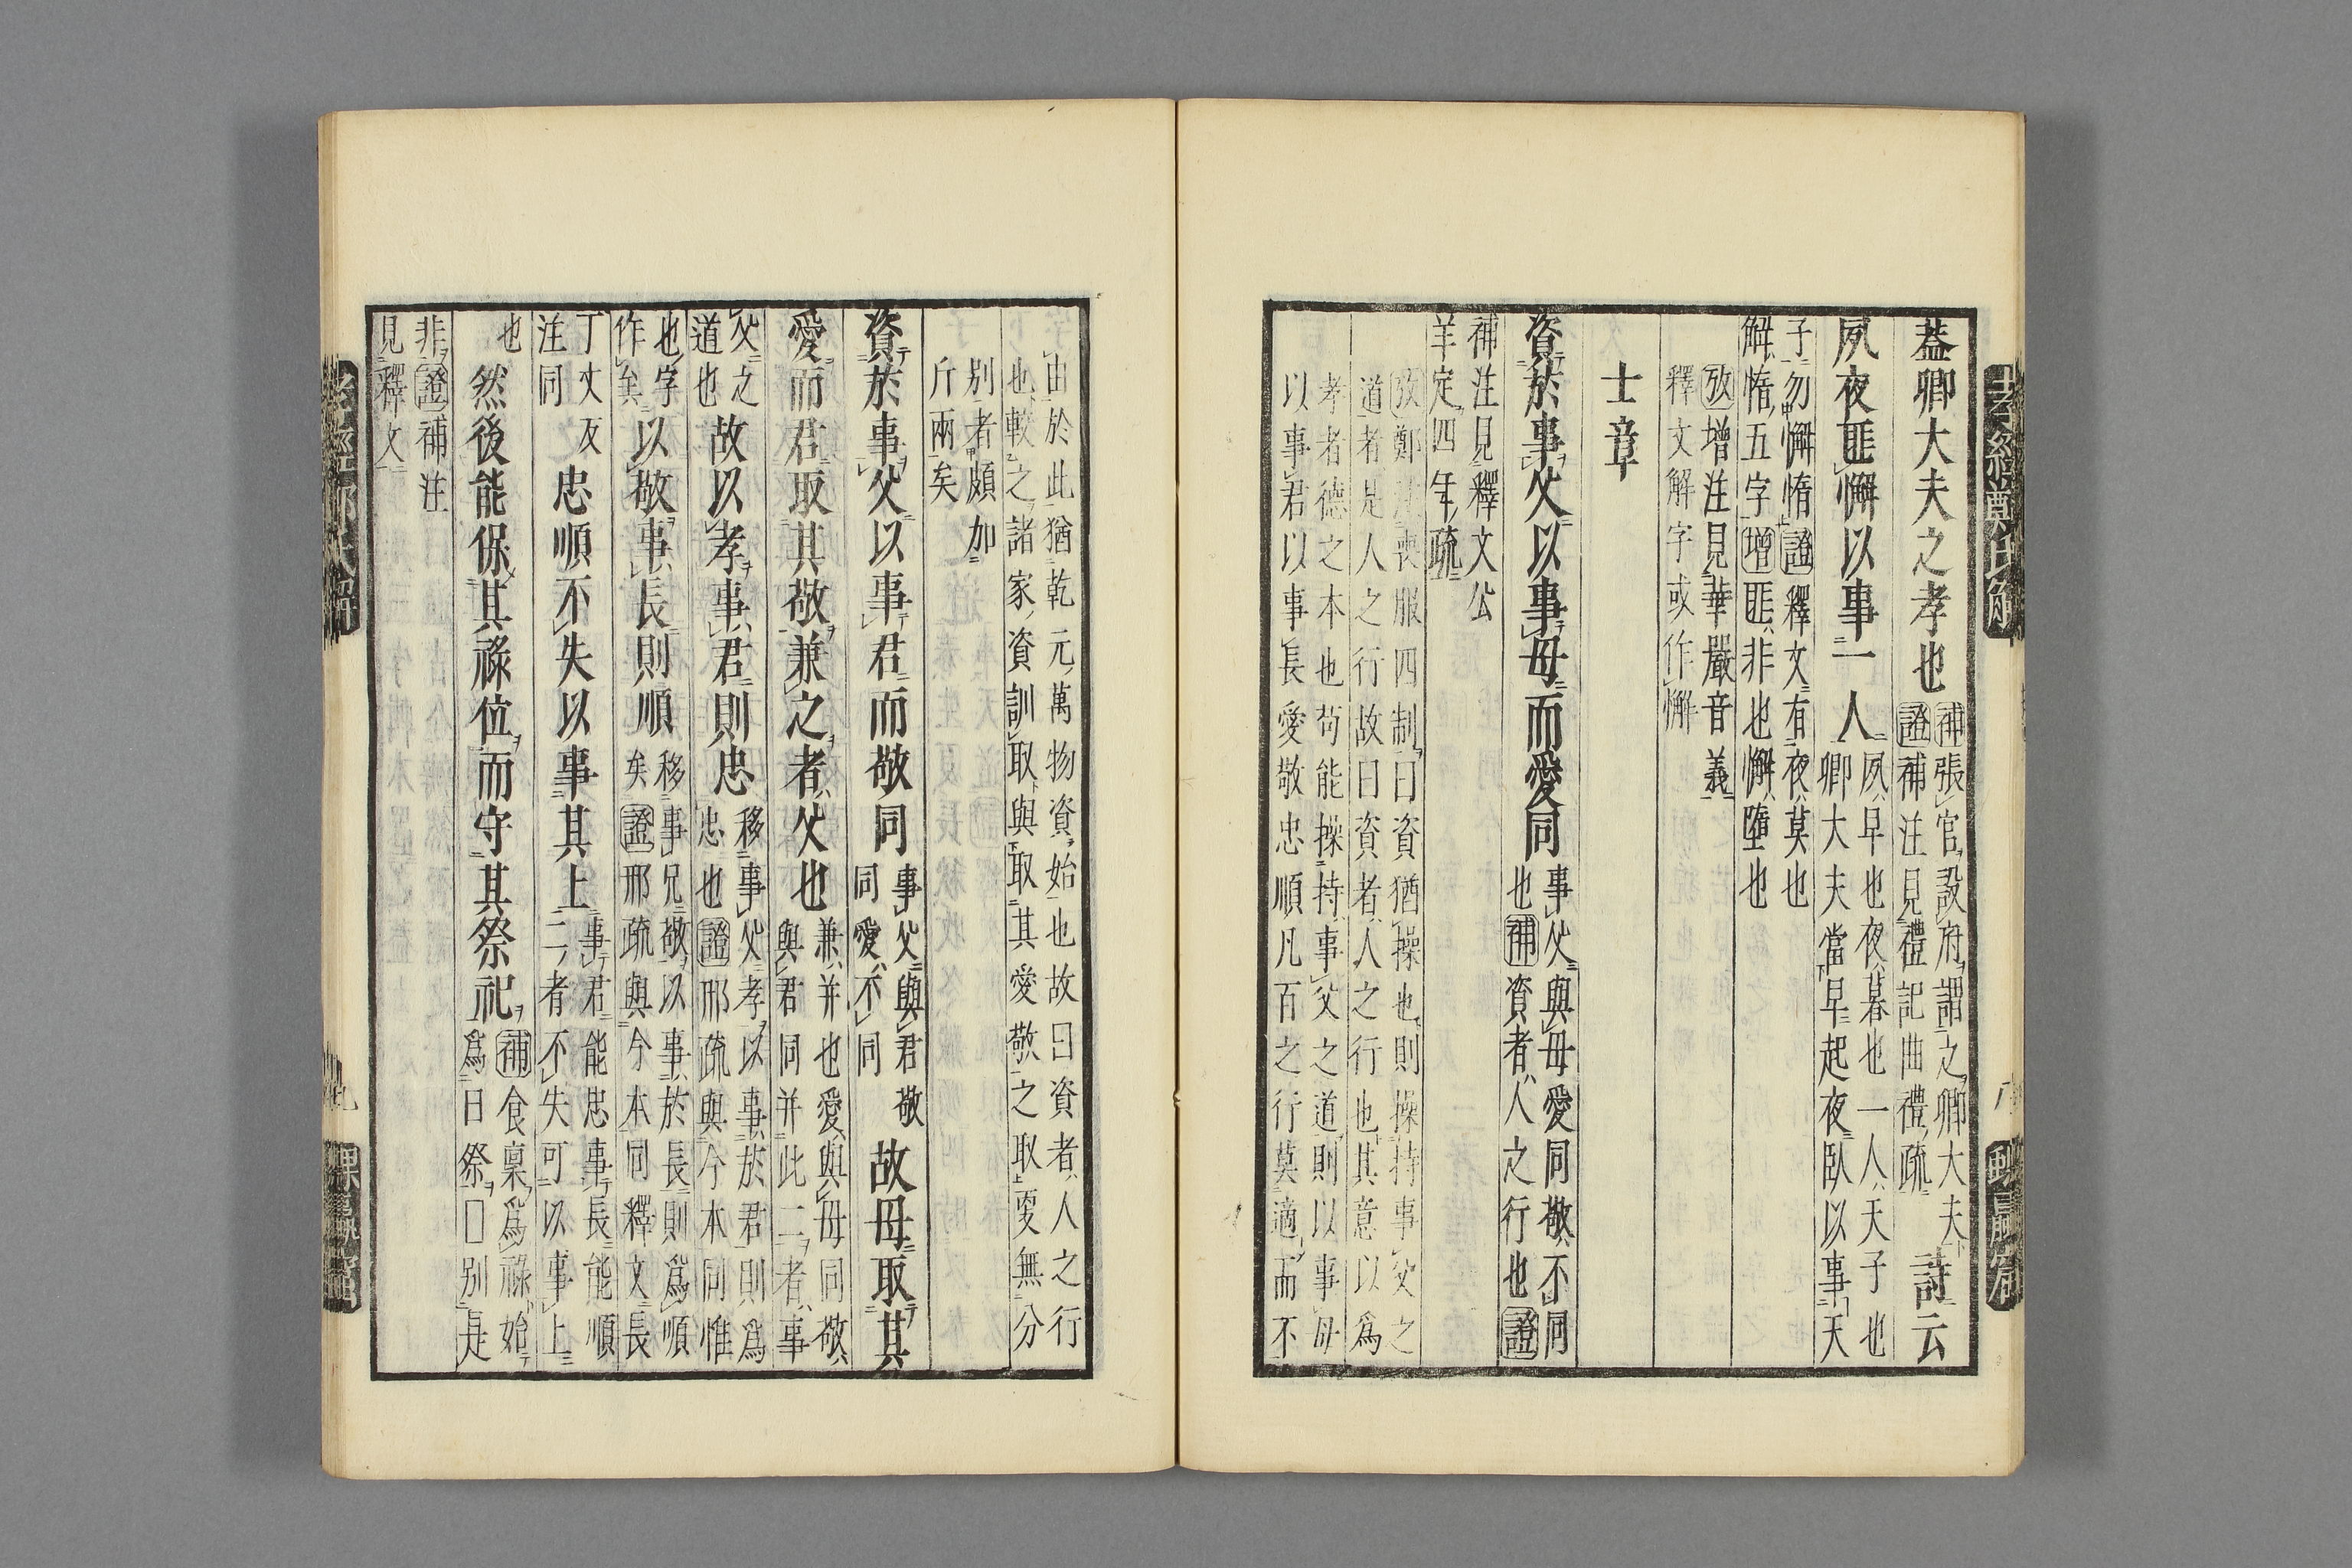 蓋卿大夫之孝也補張官設府謂之卿大夫證補注見禮記曲禮疏詩云
夙夜匪懈以事一人夙早也夜暮也一人天子也卿大夫當早起夜臥以事天
子勿懈惰證釋文有夜莫也解惰五字增匪非也懈墮也
攷增注見華嚴音義釋文解字或作懈
士章
資於事父以事母而愛同事父與母愛同敬不同也補資者人之行也證
補注見釋文公羊定四年疏
攷鄭注喪服四制曰資猶操也則操持事父之
道者是人之行故曰資者人之行也其意以爲
孝者德之本也苟能操持事父之道則以事母
以事君以事長愛敬忠順凡百之行莫適而不
由於此猶乾元萬物資始也故曰資者人之行
也較之諸家資訓取與取其愛敬之取更無分
別者頗加
斤兩矣
資於事父以事君而敬同事父與君敬同愛不同故母取其
愛而君取其敬兼之者父也兼并也愛與母同敬與君同并此二者事
父之道也故以孝事君則忠移事父孝以事於君則爲忠也證邢疏與今本同惟
也字作矣以敬事長則順移事兄敬以事於長則爲順矣證邢疏與今本同釋文長
丁丈反注同忠順不失以事其上事君能忠事長能順二者不失可以事上
也然後能保其祿位而守其祭祀補食稟爲祿始爲日祭□別是
非證補注見釋文
孝經鄭氏解
八
九